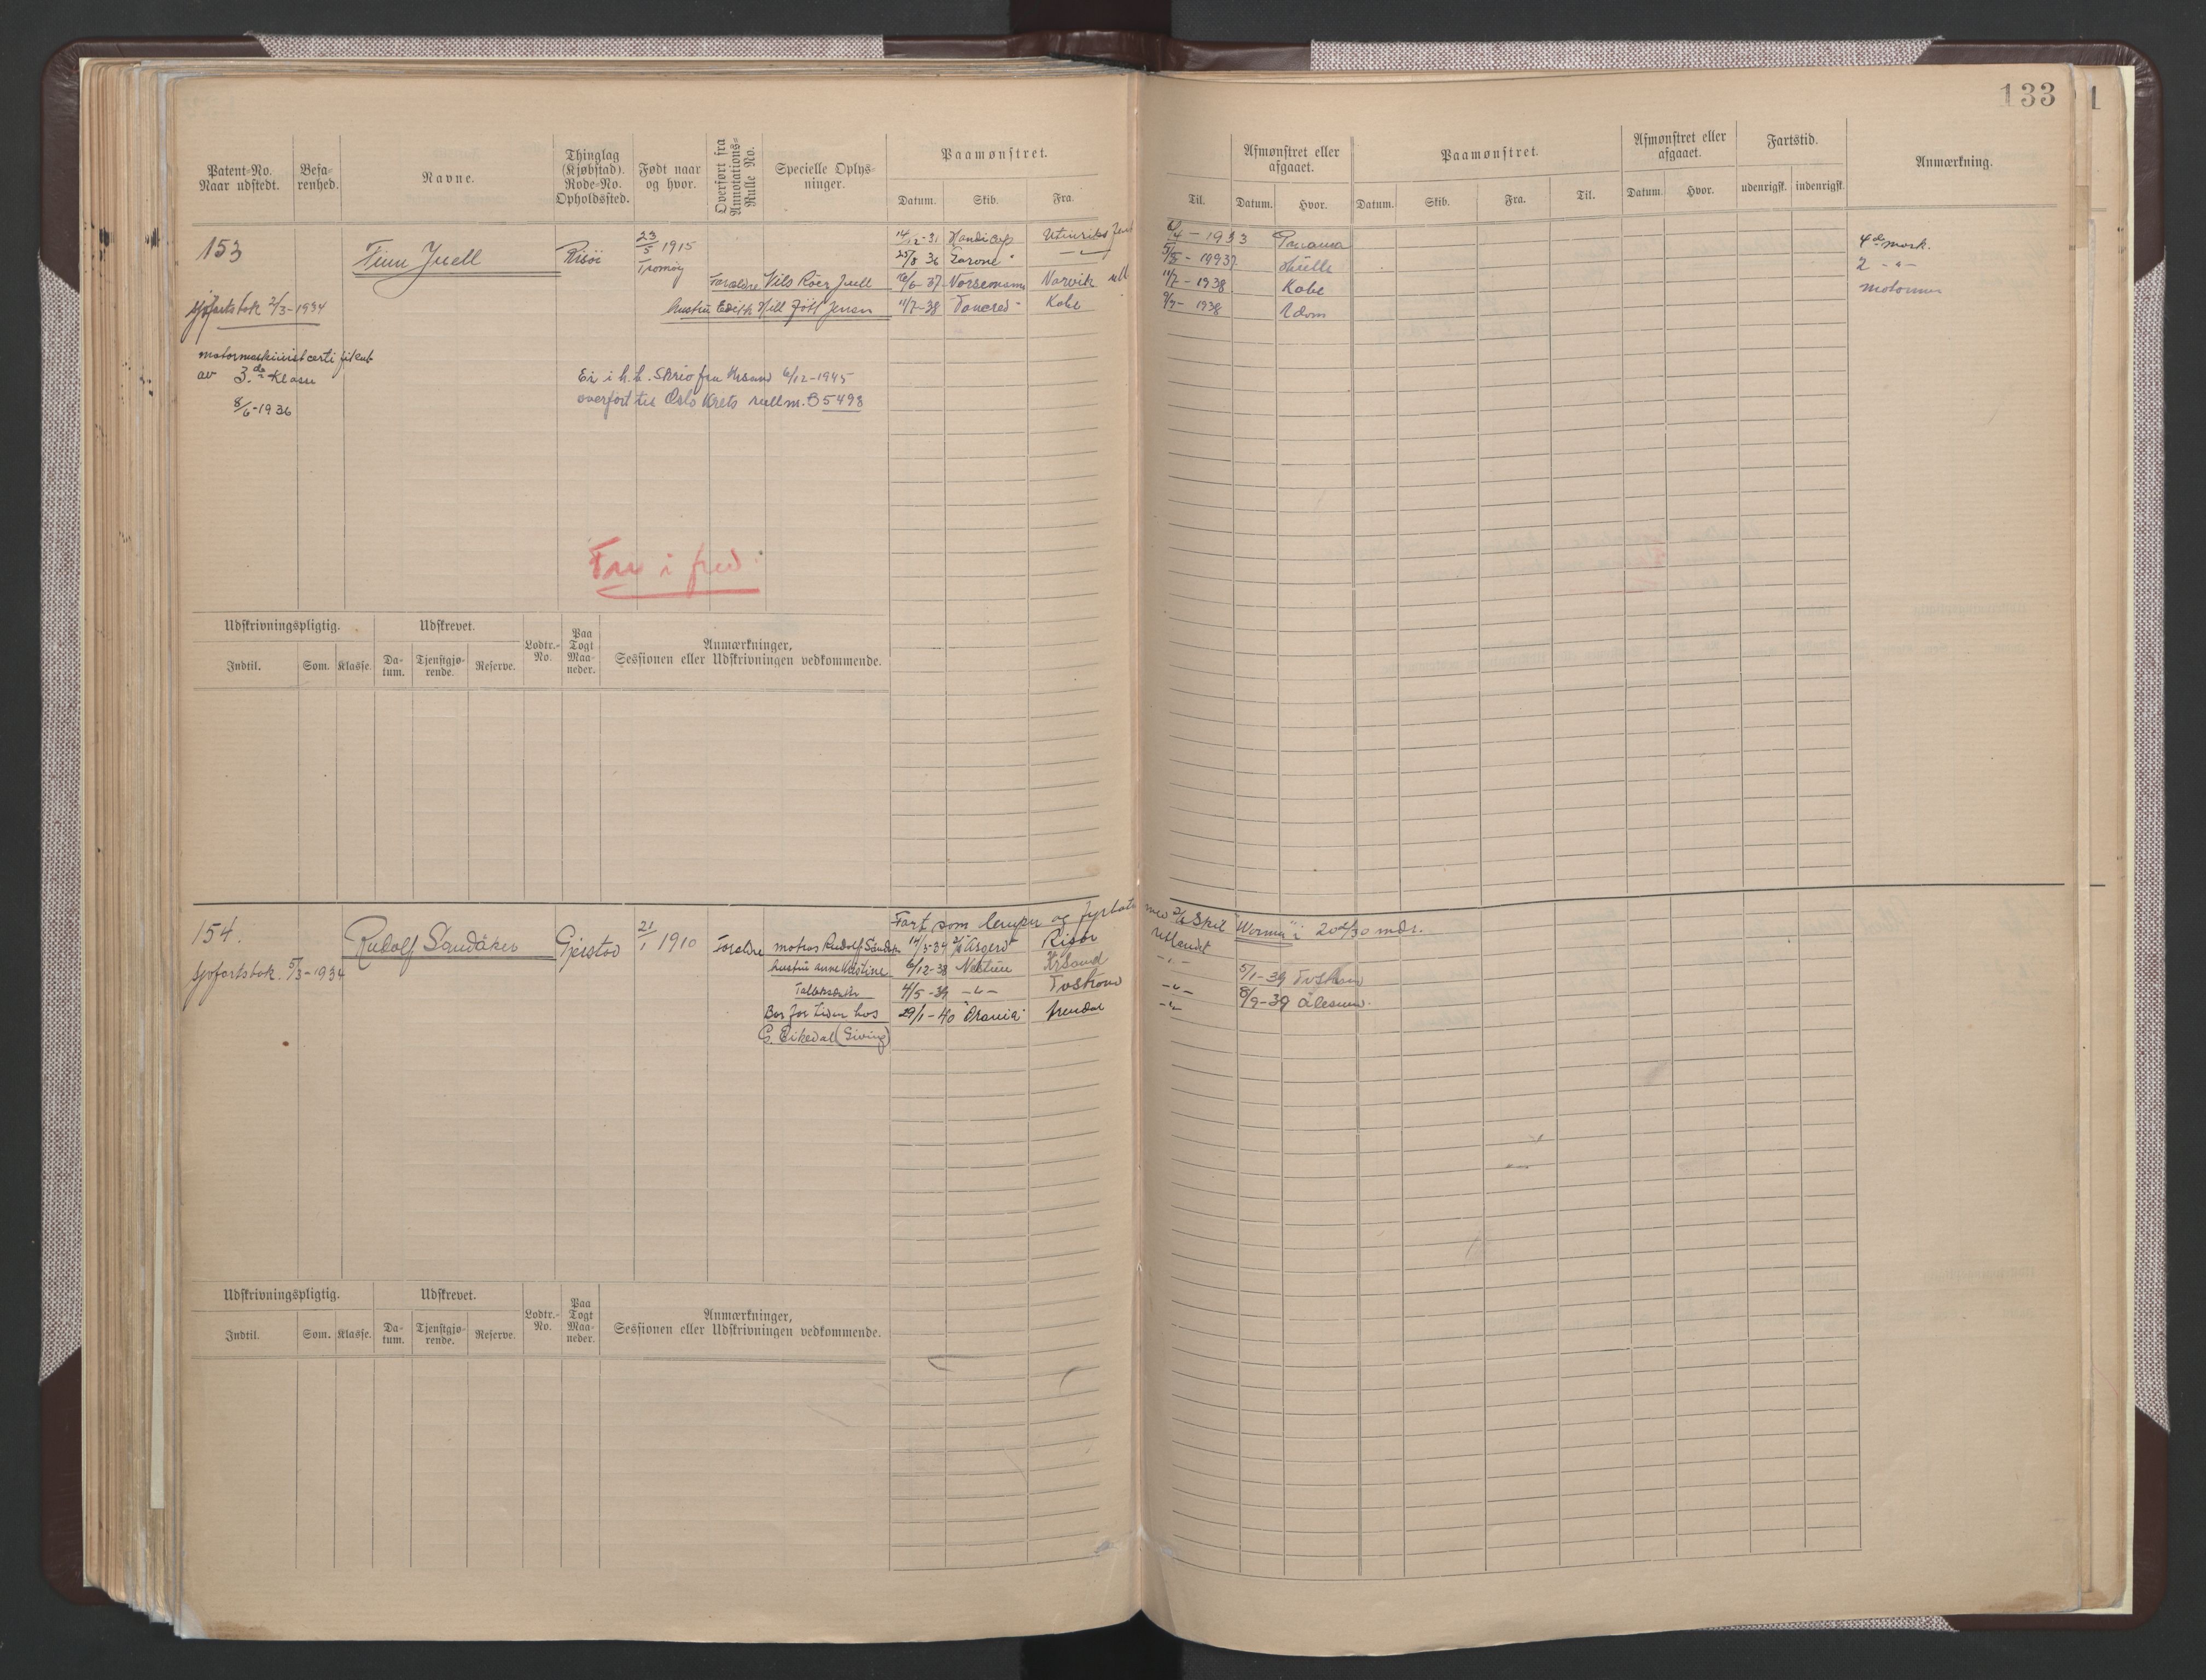 133
Patent-No. Naar udstedt.
Befarenhed.
Navne.
Thinglag (Kjøbstad). Rode-No. Opholdssted.
Født naar og hvor.
Overført fra Annotations-Rulle No.
Specielle Oplysninger.
Paamønstret.
Datum. Skib. Fra. Til.
Afmønstret eller afgaaet.
Datum. Hvor.
Paamønstret.
Datum. Skib. Fra. Til.
Afmønstret eller afgaaet.
Datum. Hvor.
Fartstid.
udenrigsk. indenrigsk.
Anmærkning.
153 Finn Juell Risör 23/5 1915 Tromöy
14/12-31 Handicap Utenriks fart 6/4-1933 Panama 4de mask.
25/8 36 Zarone - " - 5/5-19937 2 - " -
Foreldre Nils Roer Juell 16/6-37 Norvik 11/7-1938 Kobe
sjøfartsbok 2/3-1934
hustru Edith 11/7-38 Tancred Kobe 9/9-1938
motormaskinistcertifikat
av 3.de Klasse
8/6-1936
Er i h.h. skriv fra Krsand 6/12-1945
overført til Oslo Krets rullnr. B 5498
Fri i fred.
Udskrivningspligtig.
Indtil. Som. Klasse.
Udskrevet.
Datum. Tjenstgjørende. Reserve.
Lodtr.-No.
Paa Togt Maaneder.
Anmærkninger, Sessionen eller Udskrivningen vedkommende.
154. Rudolf Sandåker Gjerstad 21/1 1910
Fart som lemper og fyrbøter med Skib "Worma" i 20 2/30 mdr.
Foreldre matros Rudolf Sandåker 14/5-34 "Åsgerd" Risör utlandet
sjøfartsbok. 5/3-1934
hustru Anne Kristine 6/12-38 KrSand - " - 5/1-39
4/5-39 - " - - " - 8/9-39 Ålesund.
Bor for tiden hos 29/1-40 "Orania" Arendal - " -
G. Eikedal (Giving)
Udskrivningspligtig.
Indtil. Som. Klasse.
Udskrevet.
Datum. Tjenstgjørende. Reserve.
Lodtr.-No.
Paa Togt Maaneder.
Anmærkninger, Sessionen eller Udskrivningen vedkommende.